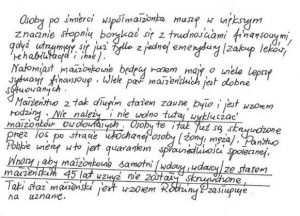 Osoby po śmierci współmałżonka muszą w większym
znacznie stopniu borykać się z trudnościami finansowymi,
gdyż utrzymują się już tylko z jednej emerytury (zakup leków,
rehabilitacja i inne).
Natomiast małżonkowie będący razem mają o wiele lepszą
sytuację finansową. Wiele par małżeńskich jest dobrze
sytuowanych.
Małżeństwo z tak długim stażem zawsze było i jest wzorem
rodziny. Nie należy i nie wolno tutaj wykluczać
małżonków owdowiałych. Osoby te i tak już są skrzywdzone
przez los po stracie ukochanej osoby (żony, męża). Państwo
Polskie winno być jest gwarantem sprawiedliwości społecznej.
Wnoszę, aby małżonkowie samotni (wdowy, wdowcy) ze stażem
małżeńskim 45 lat wzwyż nie zostały skrzywdzone.
Taki staż małżeński jest wzorem Rodziny i zasługuje
na uznanie.